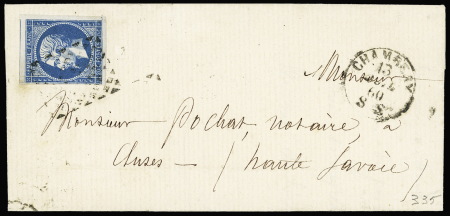 CHAMBERY
15
60
S S
Monsieur
Monsieur Pochat, notaire, à
Cluses — (haute Savoie)
335